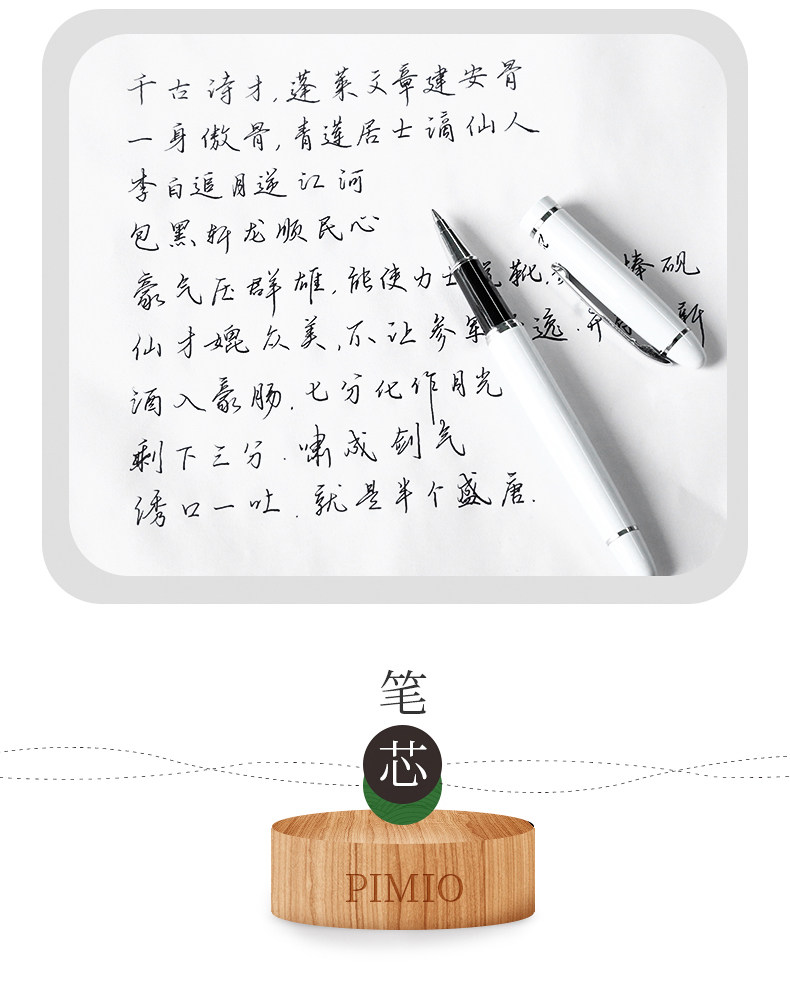 千古诗才,蓬莱文章建安骨
一身傲骨,青莲居士谪仙人
李白追月逆江河
包黑斩龙顺民心
豪气压群雄,能使力士脱靴, 捧砚
仙才媲众美,不让参军 逸.
酒入豪肠.七分化作月光
剩下三分.啸成剑气
绣口一吐.就是半个盛唐.
笔
芯
PIMIO